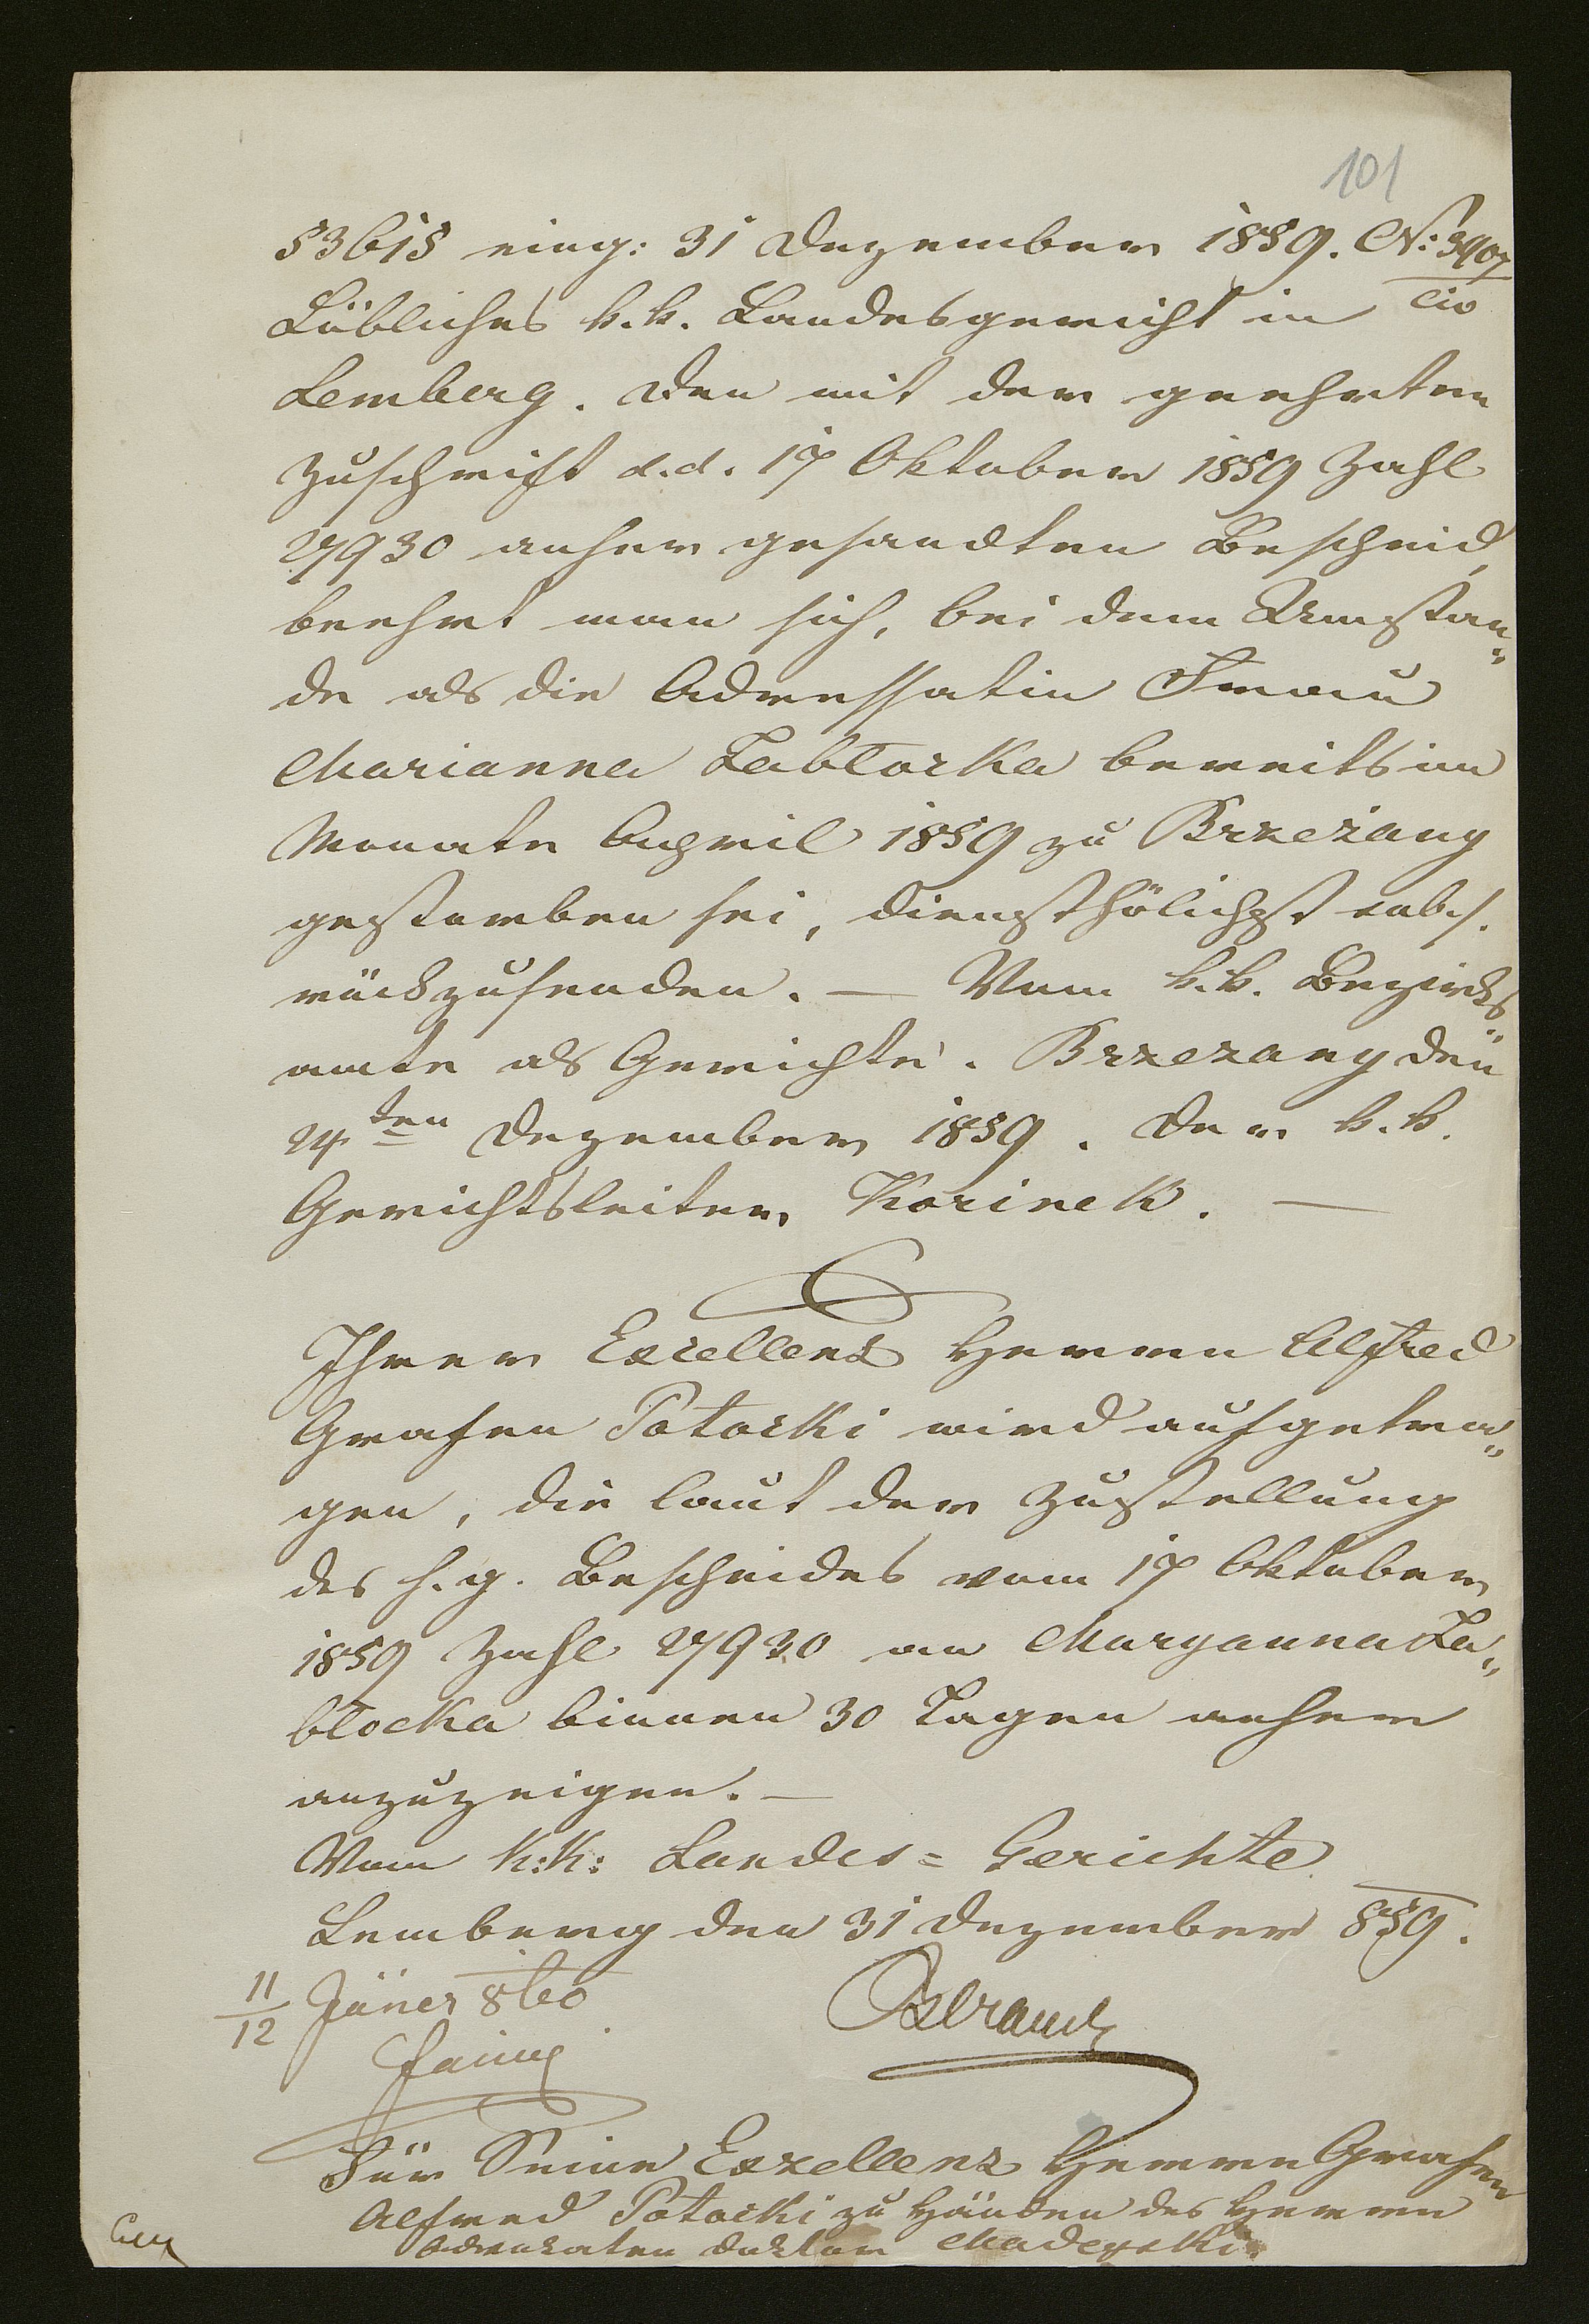 101
53615 eing: 31 Dezember 1859. N: 3407
Löbliches k. k. Landesgericht in civ
Lemberg. Den mit der geehrten
Zuschrift d. d. 17 Oktober 1859 Zahl
27930 anher gesandten Bescheid,
beehrt man sich, bei dem Umstan„
de als die Adressatin Frau
Marianna Zabłocka bereits im
Monate April 1859 zu Brzeżany
gestorben sei, dienst höflichst ./.
rückzusenden. — Vom k. k. Bezirks„
amte als Gerichte. Brzezany den
24ten Dezember 1859. Der k. k.
Gerichtsleiter Korinek. —
Ihrer Excellenz Herrn Alfred
Grafen Potocki wird aufgetra„
gen, die laut der Zustellung
des h. g. Bescheides vom 17 Oktober
1859 Zahl 27930 an Maryanna Za„
błocka binnen 30 Tagen anher
anzuzeigen. —
Vom K: K: Landes= Gerichte
Lemberg den 31 Dezember 859.
11/12 Jäner 860
Für Seine Exzellenz Herrn Grafen
Alfred Potocki zu Händen des Herrn
Advokaten Doktor Madeyski